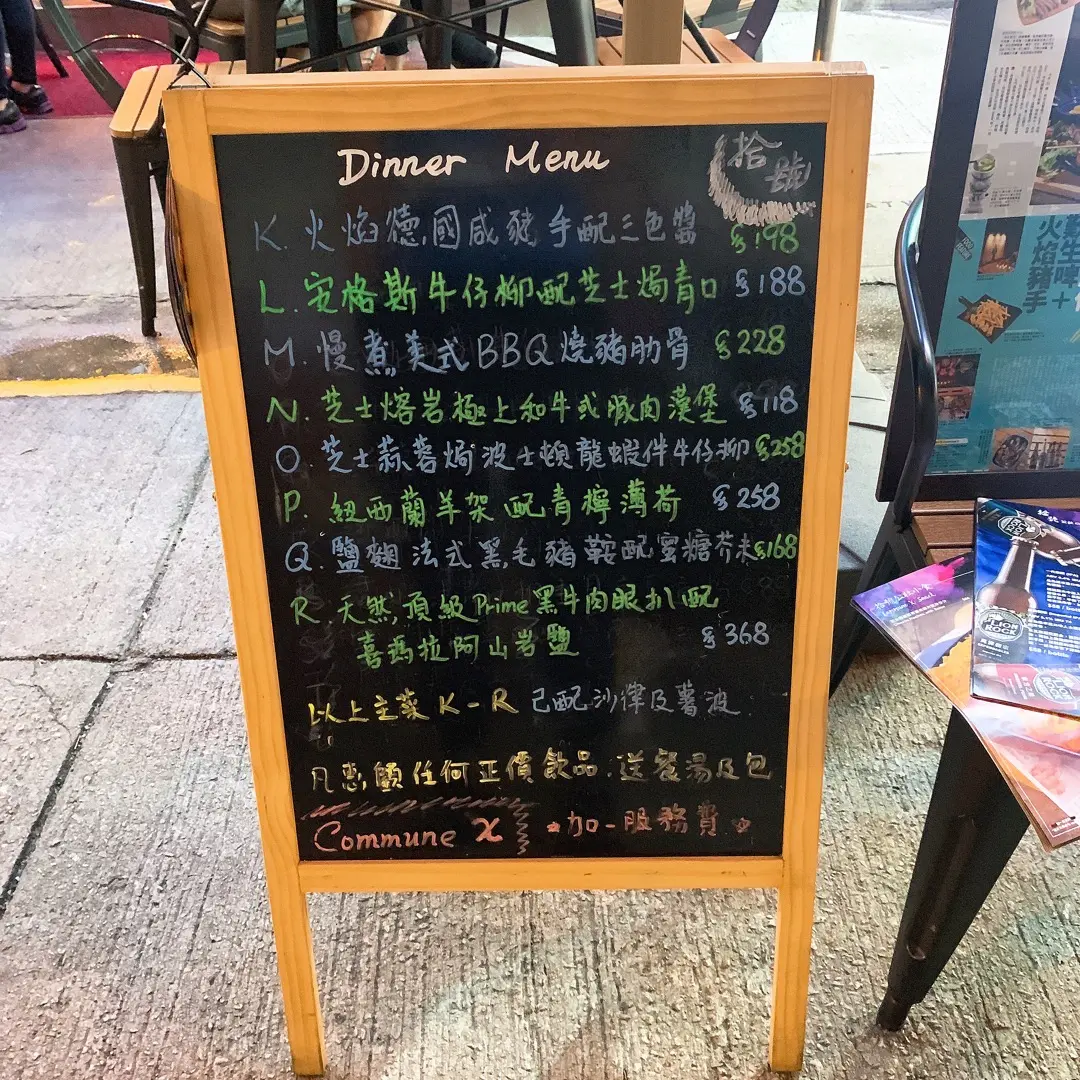 Dinner Menu
拾號
K. 火焰德國咸豬手配三色醬 $198
L. 安格斯牛仔柳配芝士焗青口 $188
M. 慢煮美式BBQ燒豬肋骨 $228
N. 芝士熔岩極上和牛或豚肉漢堡 $118
O. 芝士蒜蓉焗波士頓龍蝦伴牛仔柳 $258
P. 紐西蘭羊架配青檸薄荷 $258
Q. 鹽麴法式黑毛豬鞍配蜜糖芥末 $168
R. 天然頂級Prime黑牛肉眼扒配
喜瑪拉阿山岩鹽 $368
以上主菜 K-R 已配沙律及薯波
凡惠顧任何正價飲品,送餐湯及包
Commune X *加一服務費*
火焰豬手
LION ROCK